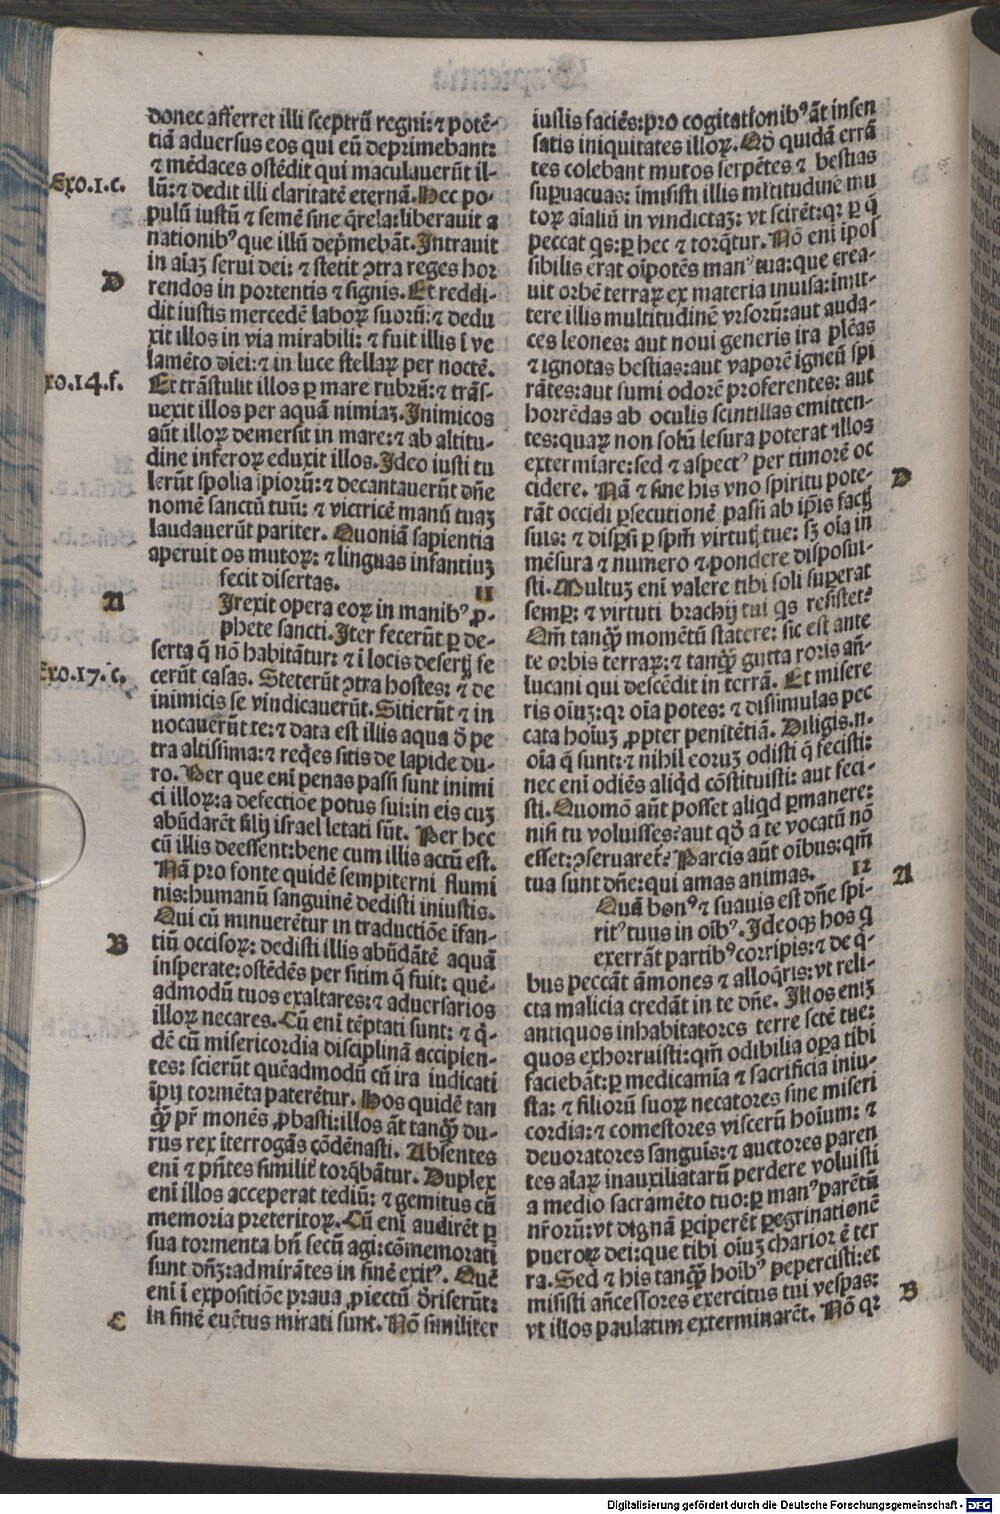 donec afferret illi sceptrū regni: ⁊ potē-
tiā adversus eos qui eū deprimebant:
⁊ mēdaces ostēdit qui maculaverūt il-
lū: ⁊ dedit illi claritatē eternā. Hec po-
pulū iustū ⁊ semē sine q̄rela: liberauit a
nationibꝰ que illū dep̄mebāt. Intrauit
in aīaꝫ serui dei: ⁊ stetit ꝯtra reges hor
rendos in portentis ⁊ signis. Et reddi-
dit iustis mercedē laboꝝ suorū: ⁊ dedu
xit illos in via mirabili: ⁊ fuit illis ī ve
lamēto diei: ⁊ in luce stellaꝝ per noctē.
Et trāstulit illos ꝑ mare rubrū: ⁊ trās-
uexit illos per aquā nimiaꝫ. Inimicos
aūt illoꝝ demersit in mare: ⁊ ab altitu-
dine inferoꝝ eduxit illos. Ideo iusti tu
lerūt spolia īpiorū: ⁊ decantauerūt dn̄e
nomē sanctū tuū: ⁊ victricē manū tuaꝫ
laudauerūt pariter. Quoniā sapientia
aperuit os mutoꝝ: ⁊ linguas infantiuꝫ
fecit disertas. 11
Irexit opera eoꝝ in manibꝰ ꝓ-
phete sancti. Iter fecerūt ꝑ de-
serta q̄ nō habitātur: ⁊ ī locis desertꝭ fe
cerūt casas. Steterūt ꝯtra hostes: ⁊ de
inimicis se vindicauerūt. Sitierūt ⁊ in
uocauerūt te: ⁊ data est illis aqua d̄ pe
tra altissima: ⁊ req̄es sitis de lapide du-
ro. Per que enī penas passi sunt inimi
ci illoꝝ: a defectiōe potus sui: in eis cuꝫ
abūdarēt filij israel letati sūt. Per hec
cū illis deessent: bene cum illis actū est.
Nā pro fonte quidē sempiterni flumi
nis: humanū sanguinē dedisti iniustis.
Qui cū minuerētur in traductiōe īfan-
tiū occisoꝝ: dedisti illis abūdātē aquā
insperate: ostēdēs per sitim q̄ fuit: quē-
admodū tuos exaltares: ⁊ aduersarios
illoꝝ necares. Cū enī tēptati sunt: ⁊ q̄-
dē cū misericordia disciplinā accipien-
tes: scierūt quēadmodū cū ira iudicati
īpij tormēta paterētur. Hos quidē tan
qꝫ̄ pr̄ monēs ꝓbasti: illos āt tanqꝫ̄ du-
rus rex īterrogās cōdēnasti. Absentes
enī ⁊ pn̄tes similit̓ torq̄bātur. Duplex
enī illos acceperat tediū: ⁊ gemitus cū
memoria preteritoꝝ. Cū enī audirēt ꝑ
sua tormenta bn̄ secū agi: cōmemorati
sunt dn̄ꝫ: admirātes in finē exitꝰ. Quē
enī ī expositiōe praua ꝓiectū d̄riserūt:
in finē euētus mirati sunt. Nō similiter
Exo.1.c.
D
xo.14.f.
A
Exo.17.c.
B
C
iustis faciēs: pro cogitationibꝰ āt insen
satis iniquitates illoꝝ. Qd̄ quidā errā
tes colebant mutos serpētes ⁊ bestias
supuacuas: īmisisti illis mltitudinē mu
toꝝ aīaliū in vindictaꝫ: vt scirēt: qꝛ ꝑ q̄
peccat qs: ꝑ hec ⁊ torq̄tur. Nō enī īpos
sibilis erat oīpotēs manꝰ tua: que crea-
uit orbē terraꝝ ex materia inuisa: īmit-
tere illis multitudinē vrsorū: aut auda-
ces leones: aut noui generis ira plēas
⁊ ignotas bestias: aut vaporē igneū spi
rātes: aut fumi odorē proferentes: aut
horrēdas ab oculis scintillas emitten-
tes: quaꝝ non solū lesura poterat illos
extermīare: sed ⁊ aspectꝰ per timorē oc
cidere. Nā ⁊ sine his vno spiritu pote-
rāt occidi ꝑsecutionē passi ab ip̄is factꝭ
suis: ⁊ disꝑsi ꝑ spm̄ virtutꝭ tue: sꝫ oīa in
mēsura ⁊ numero ⁊ pondere disposui-
sti. Multuꝫ enī valere tibi soli superat
semp: ⁊ virtuti brachij tui qs resistet?
Qm̄ tanqꝫ̄ momētū statere: sic est ante
te orbis terraꝝ: ⁊ tanqꝫ̄ gutta roris añ-
lucani qui descēdit in terrā. Et misere
ris oīuꝫ: qꝛ oīa potes: ⁊ dissimulas pec
cata hoīuꝫ ꝓpter penitētiā. Diligis.n.
oīa q̄ sunt: ⁊ nihil eoruꝫ odisti q̄ fecisti:
nec eni odiēs aliqd cōstituisti: aut feci-
sti. Quomō aūt posset aliqd ꝑmanere:
nisi tu voluisses? aut qd̄ a te vocatū nō
esset: ꝯseruaret̓? Parcis aūt oībus: qm̄
tua sunt dn̄e: qui amas animas. 12
Quā bonꝰ ⁊ suauis est dn̄e spi-
ritꝰ tuus in oībꝰ. Ideoqꝫ hos q̄
exerrāt partibꝰ corripis: ⁊ de q̄-
bus peccāt āmones ⁊ alloq̄ris: vt reli-
cta malicia credāt in te dn̄e. Illos eniꝫ
antiquos inhabitatores terre sctē tue:
quos exhorruisti: qm̄ odibilia oꝑa tibi
faciebāt: ꝑ medicamīa ⁊ sacrificia iniu-
sta: ⁊ filiorū suoꝝ necatores sine miseri
cordia: ⁊ comestores viscerū hoīum: ⁊
deuoratores sanguīs: ⁊ auctores paren
tes aīaꝝ inauxiliatarū perdere voluisti
a medio sacramēto tuo: ꝑ manꝰ parētū
nr̄orū: vt dignā ꝑciperēt ꝑegrinationē
pueroꝝ dei: que tibi oīuꝫ charior ē ter
ra. Sed ⁊ his tanqꝫ̄ hoībꝰ pepercisti: et
misisti añcessores exercitus tui vespas:
vt illos paulatim exterminarēt. Nō qꝛ
D
A
B
Digitalisierung gefördert durch die Deutsche Forschungsgemeinschaft - DFG